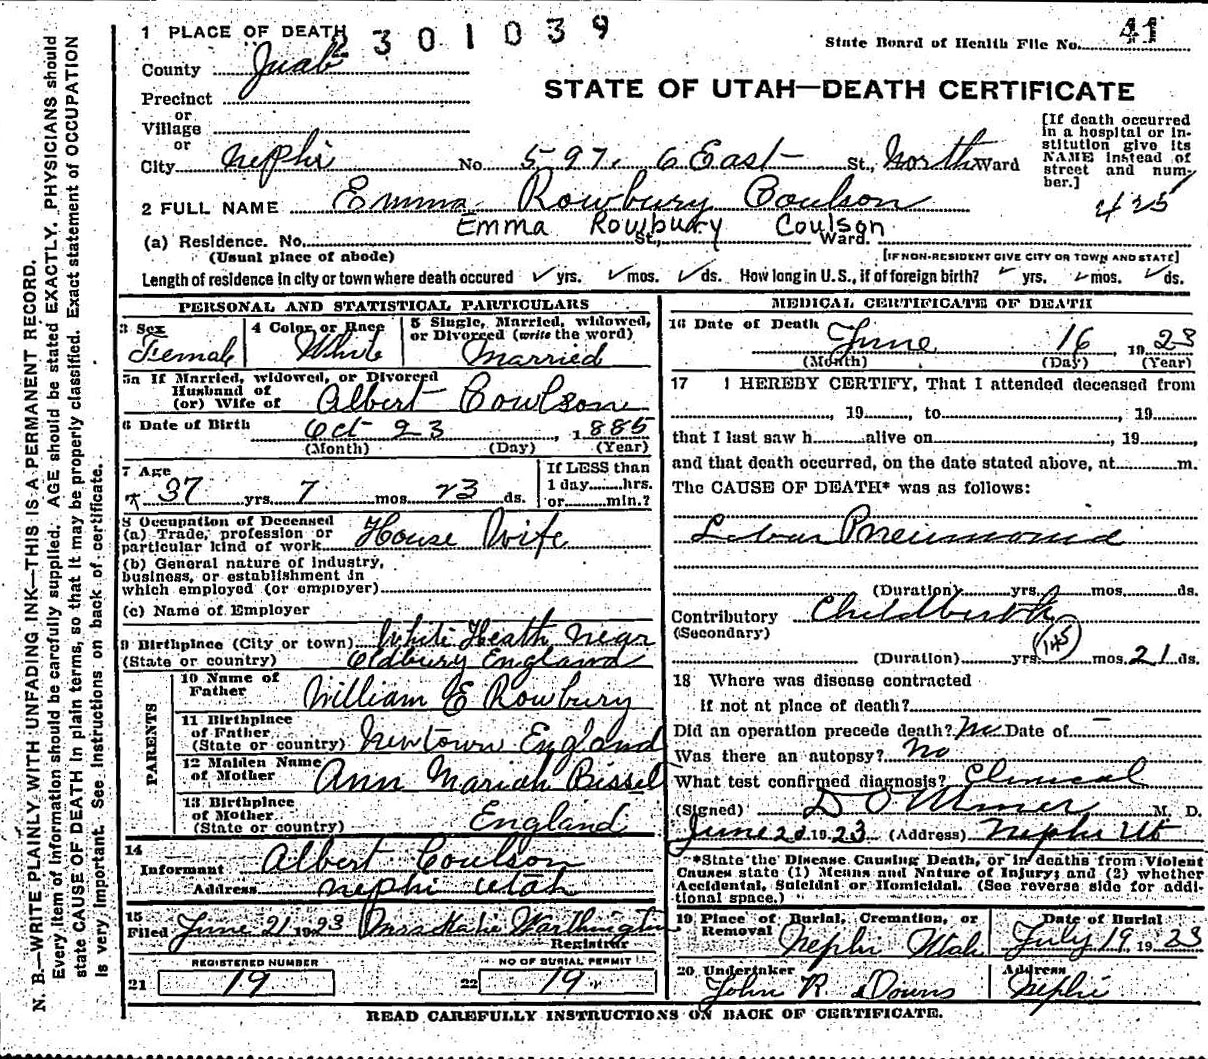 1 PLACE OF DEATH
2301039
State Board of Health File No. 41
County Juab
STATE OF UTAH—DEATH CERTIFICATE
Precinct
or
Village
or
City Nephi No. 597. 6 East St., North Ward
[If death occurred in a hospital or institution give its NAME instead of street and number.]
425
2 FULL NAME Emma Rowbury Coulson
Emma Rowbury Coulson
(a) Residence. No. St., Ward.
(Usual place of abode) [IF NON-RESIDENT GIVE CITY OR TOWN AND STATE]
Length of residence in city or town where death occured ✓ yrs. ✓ mos. ✓ ds. How long in U.S., if of foreign birth? ✓ yrs. ✓ mos. ✓ ds.
PERSONAL AND STATISTICAL PARTICULARS
3 Sex Female
4 Color or Race White
5 Single, Married, widowed, or Divorced (write the word) Married
5a If Married, widowed, or Divorced
Husband of
(or) Wife of Albert Coulson
6 Date of Birth Oct 23, 1885
(Month) (Day) (Year)
7 Age
37 yrs. 7 mos. 23 ds.
If LESS than
1 day hrs.
or min.?
8 Occupation of Deceased
(a) Trade, profession or
particular kind of work House Wife
(b) General nature of industry,
business, or establishment in
which employed (or employer)
(c) Name of Employer
9 Birthplace (City or town) White Heath Near
(State or country) Oldbury England
PARENTS
10 Name of
Father William E Rowbury
11 Birthplace
of Father
(State or country) Newtown England
12 Maiden Name
of Mother Ann Mariah Bissel
13 Birthplace
of Mother
(State or country) England
14
Informant Albert Coulson
Address Nephi Utah
15
Filed June 21 1923 Miss Katie Warthington
Registrar
REGISTERED NUMBER
21 19
NO OF BURIAL PERMIT
22 19
MEDICAL CERTIFICATE OF DEATH
16 Date of Death June 16, 1923
(Month) (Day) (Year)
17 I HEREBY CERTIFY, That I attended deceased from
, 19 , to , 19
that I last saw h alive on , 19 ,
and that death occurred, on the date stated above, at m.
The CAUSE OF DEATH* was as follows:
Lobar Pneumonia
(Duration) yrs. mos. ds.
Contributory Childbirth
(Secondary)
145
(Duration) yrs. mos. 21 ds.
18 Where was disease contracted
if not at place of death?
Did an operation precede death? No Date of –
Was there an autopsy? No
What test confirmed diagnosis? Clinical
(Signed) D O M. D.
June 1923 (Address) Nephi Ut
*State the Disease Causing Death, or in deaths from Violent
Causes state (1) Means and Nature of Injury; and (2) whether
Accidental, Suicidal or Homicidal. (See reverse side for additional space.)
19 Place of Burial, Cremation, or
Removal Nephi Utah
Date of Burial
July 19 1923
20 Undertaker
John R Downs
Address
Nephi
READ CAREFULLY INSTRUCTIONS ON BACK OF CERTIFICATE.
N. B.—WRITE PLAINLY WITH UNFADING INK—THIS IS A PERMANENT RECORD.
Every item of information should be carefully supplied. AGE should be stated EXACTLY. PHYSICIANS should
state CAUSE OF DEATH in plain terms, so that it may be properly classified. Exact statement of OCCUPATION
is very important. See instructions on back of certificate.